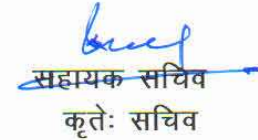 सहायक सचिव
कृतेः सचिव